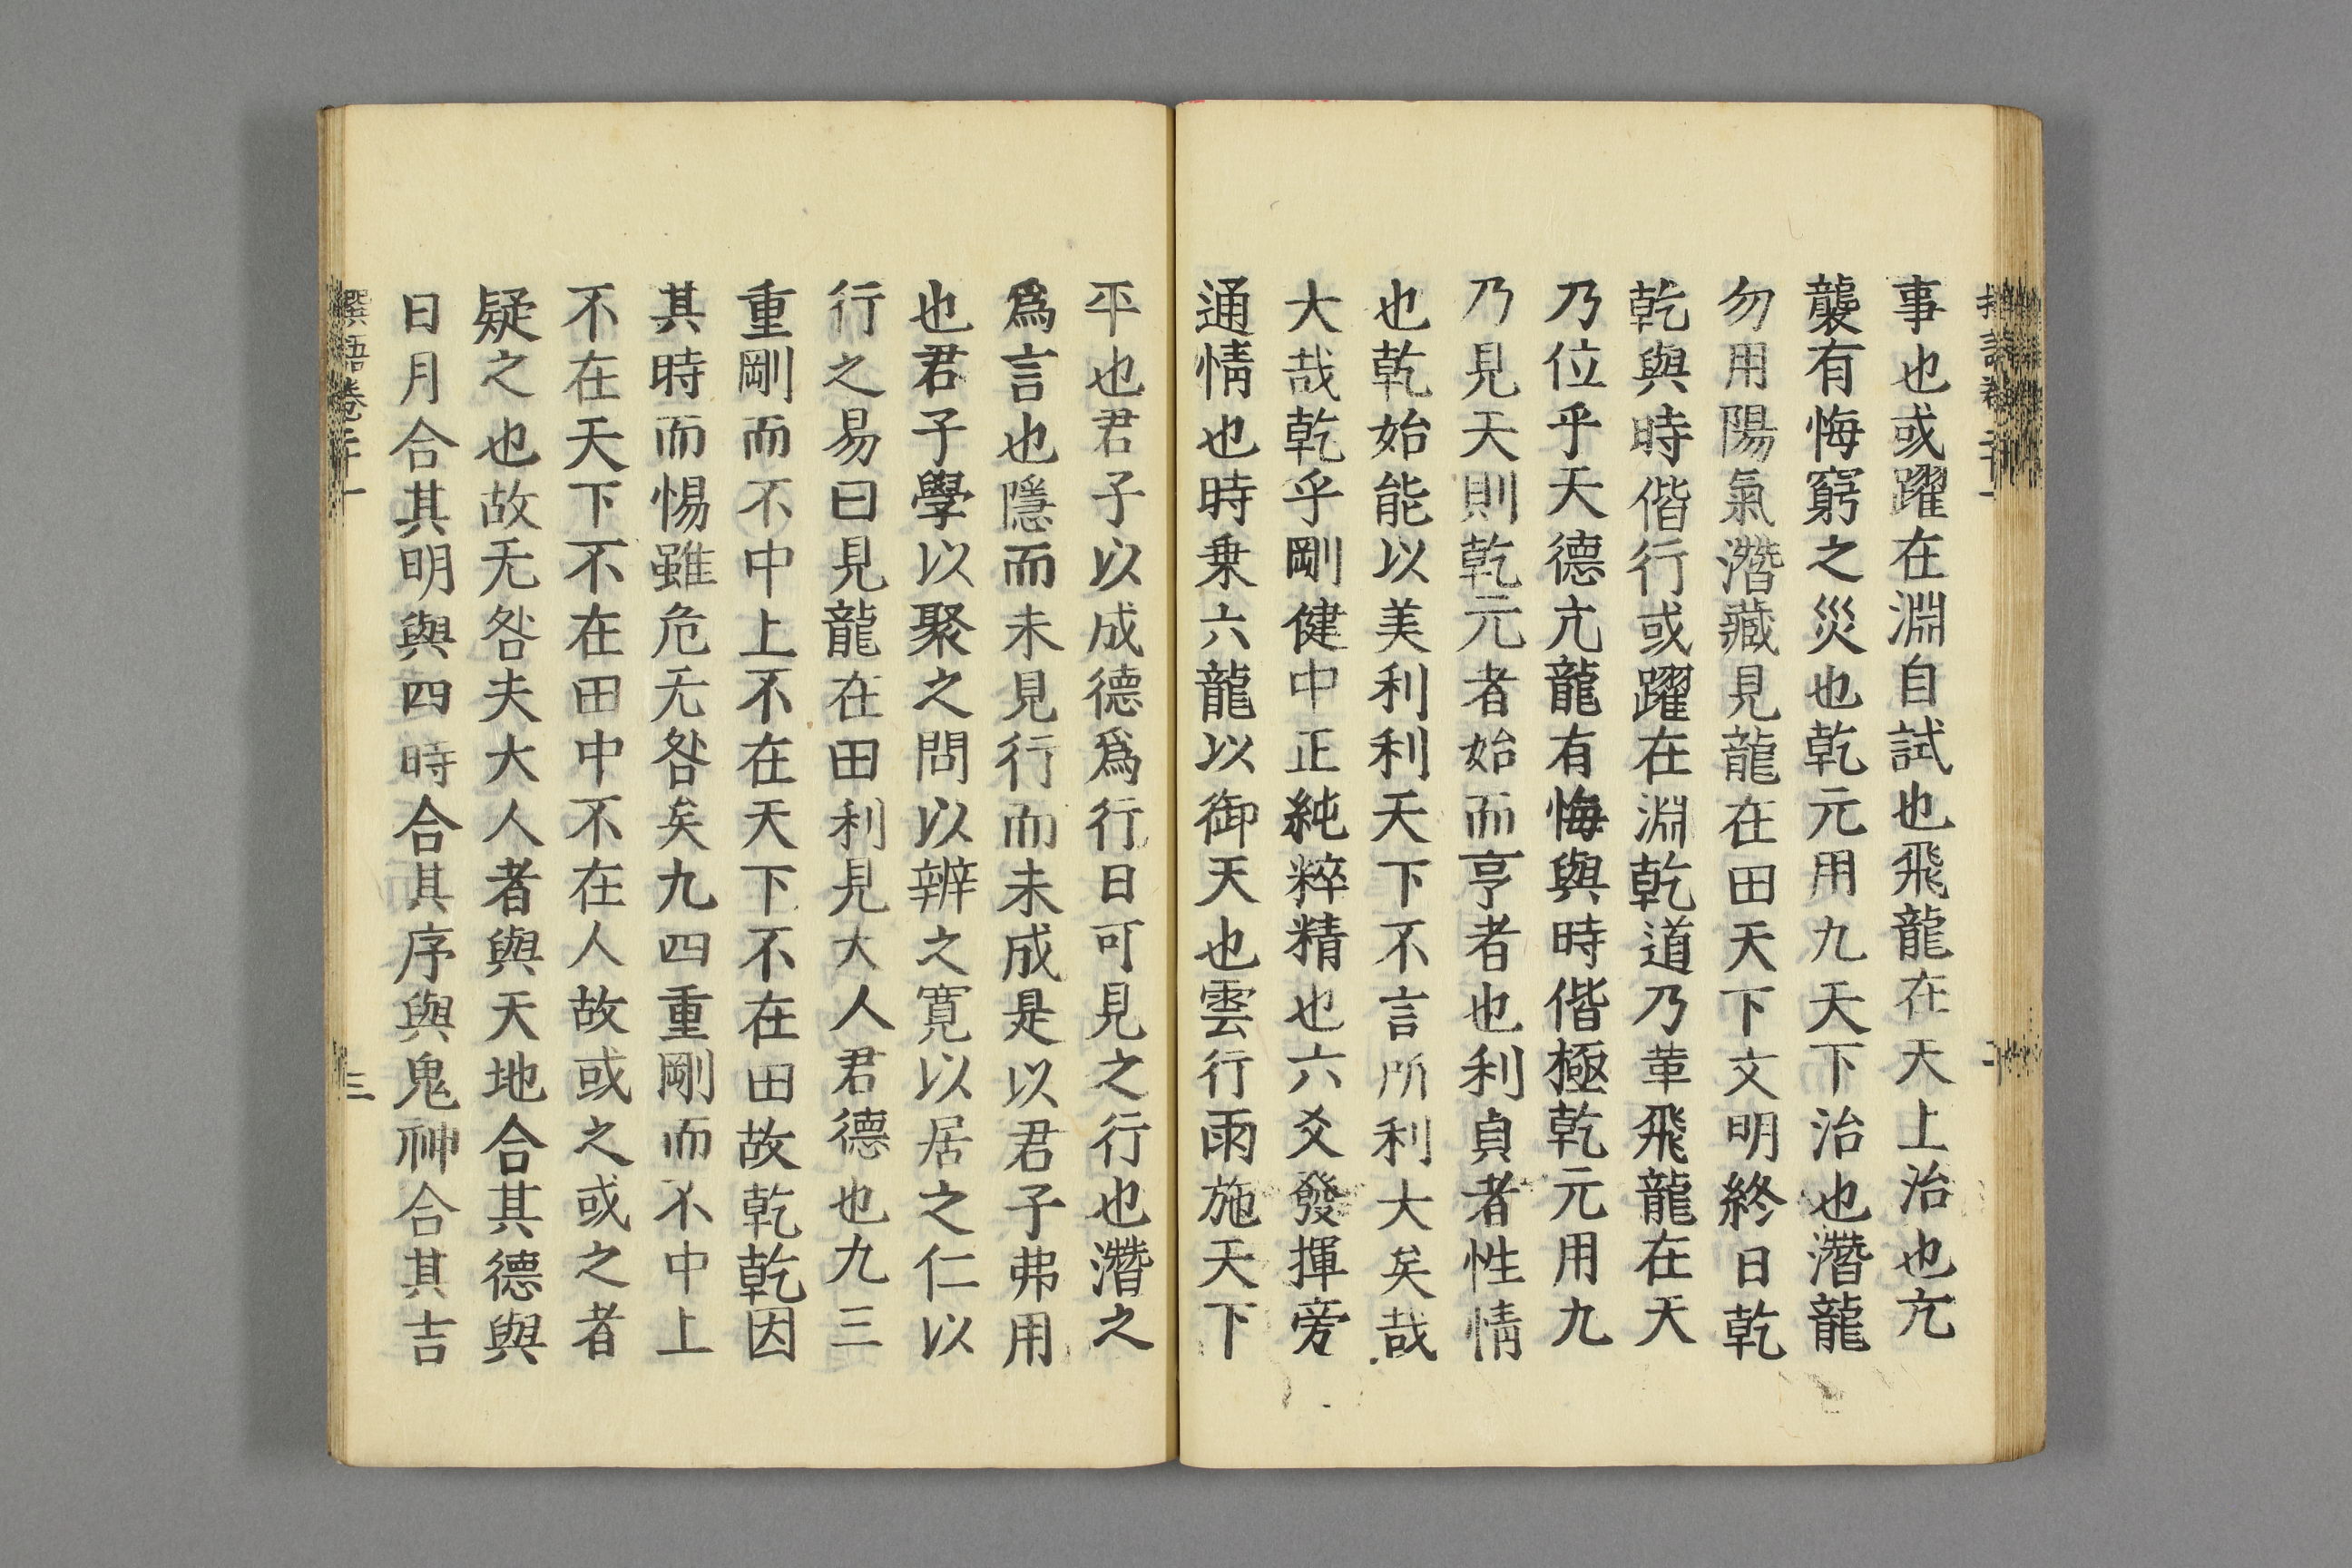 事也或躍在淵自試也飛龍在天上治也亢
襲有悔窮之災也乾元用九天下治也濳龍
勿用陽氣濳藏見龍在田天下文明終日乾
乾與時偕行或躍在淵乾道乃革飛龍在天
乃位乎天德亢龍有悔與時偕極乾元用九
乃見天則乾元者始而亨者也利貞者性情
也乾始能以美利利天下不言所利大矣哉
大哉乾乎剛健中正純粹精也六爻發揮旁
通情也時乗六龍以御天也雲行雨施天下
平也君子以成德爲行日可見之行也濳之
爲言也隱而未見行而未成是以君子弗用
也君子學以聚之問以辨之寬以居之仁以
行之易曰見龍在田利見大人君德也九三
重剛而不中上不在天下不在田故乾乾因
其時而惕雖危无咎矣九四重剛而不中上
不在天下不在田中不在人故或之或之者
疑之也故无咎夫大人者與天地合其德與
日月合其明與四時合其序與鬼神合其吉
撰語卷二十一 三